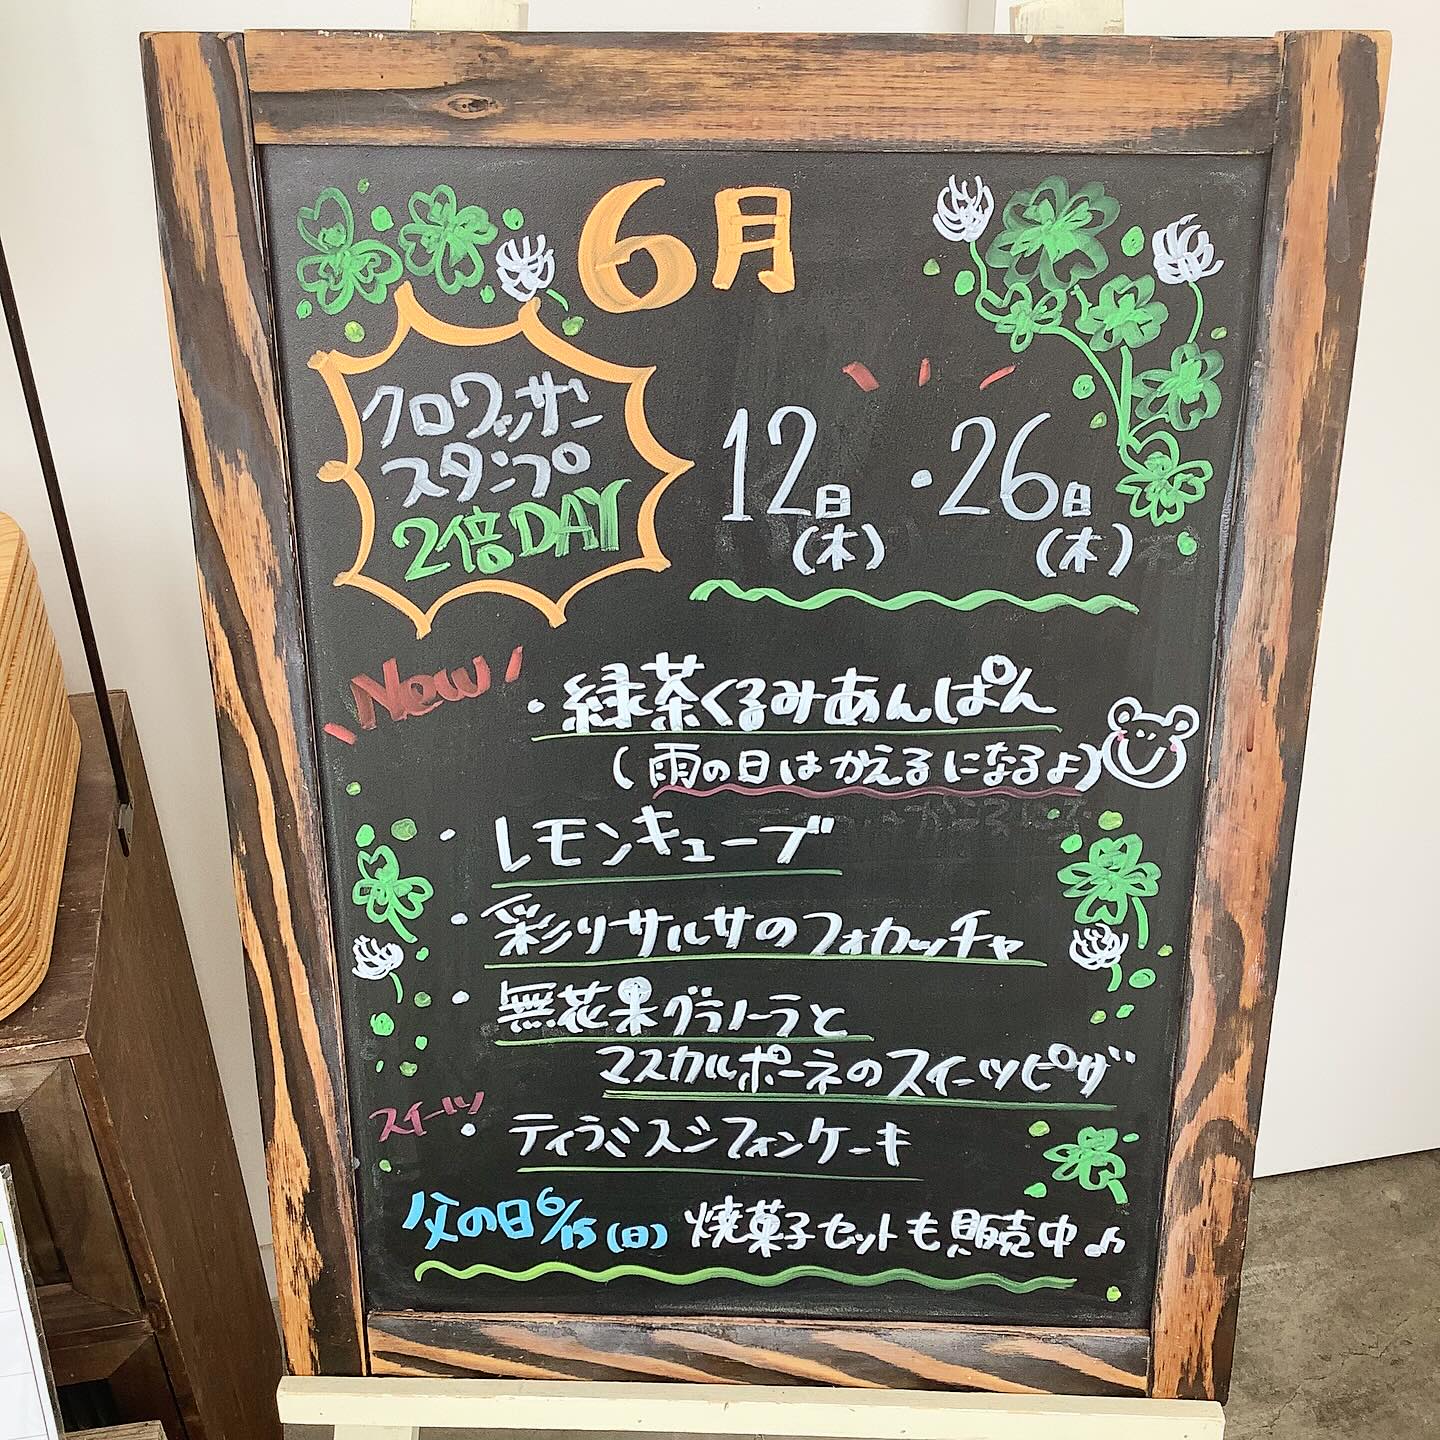 6月
クロワッサン
スタンプ
2倍DAY
12日(木)・26日(木)
New
・緑茶くるみあんぱん
(雨の日はかえるになるよ)
・レモンキューブ
・彩りサルサのフォカッチャ
・無花果グラノーラと
マスカルポーネのスイーツピザ
スイーツ
・ティラミスシフォンケーキ
父の日6/15(日) 焼菓子セットも販売中♪